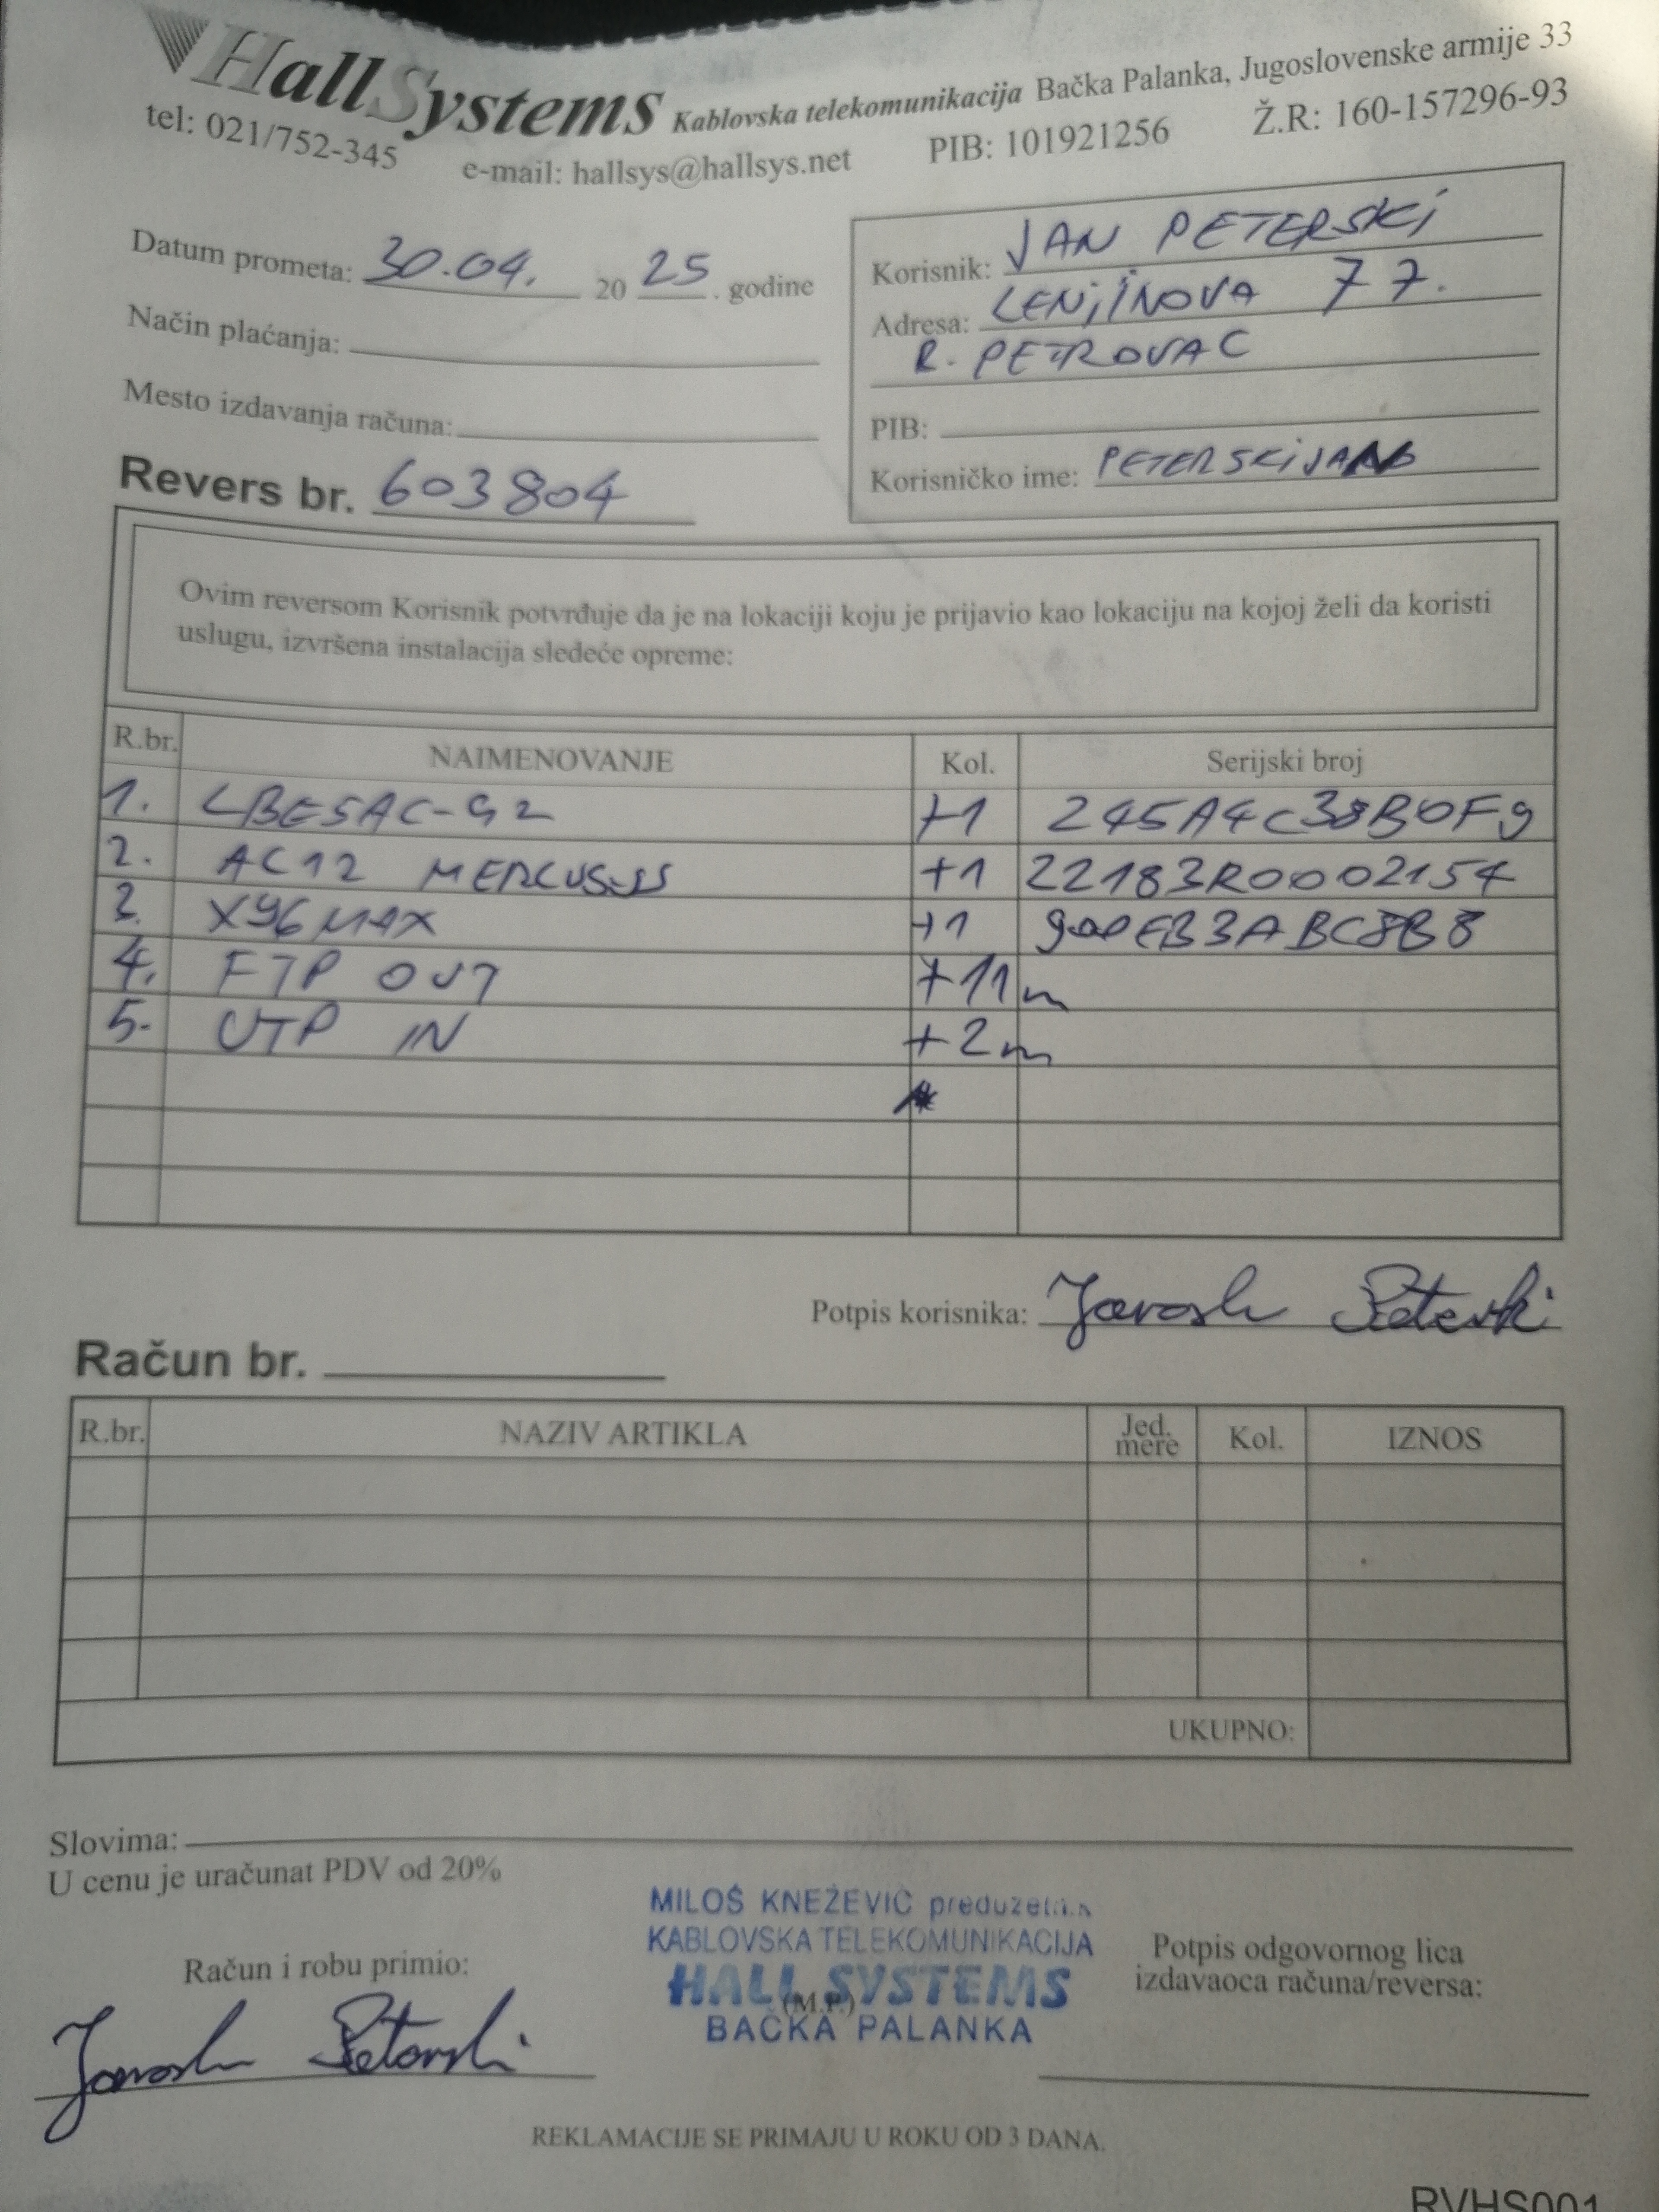 HallSystems Kablovska telekomunikacija Bačka Palanka, Jugoslovenske armije 33
tel: 021/752-345 e-mail: hallsys@hallsys.net PIB: 101921256 Ž.R: 160-157296-93
Datum prometa: 30.04. 2025. godine
Način plaćanja:
Mesto izdavanja računa:
Revers br. 603804
Korisnik: JAN PETERSKI
Adresa: LENJINOVA 77.
R. PETROVAC
PIB:
Korisničko ime: PETERSKIJAN
Ovim reversom Korisnik potvrđuje da je na lokaciji koju je prijavio kao lokaciju na kojoj želi da koristi
uslugu, izvršena instalacija sledeće opreme:
R.br. NAIMENOVANJE Kol. Serijski broj
1. LBE5AC-G2 +1 245A4C38B0F9
2. AC12 MERCUSYS +1 22183R0002154
3. X96 MAX +1
4. FTP OUT +11m
5. UTP IN +2m
Potpis korisnika: Peterski
Račun br.
R.br. NAZIV ARTIKLA Jed. mere Kol. IZNOS
UKUPNO:
Slovima:
U cenu je uračunat PDV od 20%
MILOŠ KNEŽEVIĆ preduzetnik
KABLOVSKA TELEKOMUNIKACIJA
HALL SYSTEMS
(M.P.)
BAČKA PALANKA
Račun i robu primio:
Peterski
Potpis odgovornog lica
izdavaoca računa/reversa:
REKLAMACIJE SE PRIMAJU U ROKU OD 3 DANA.
RVHS001